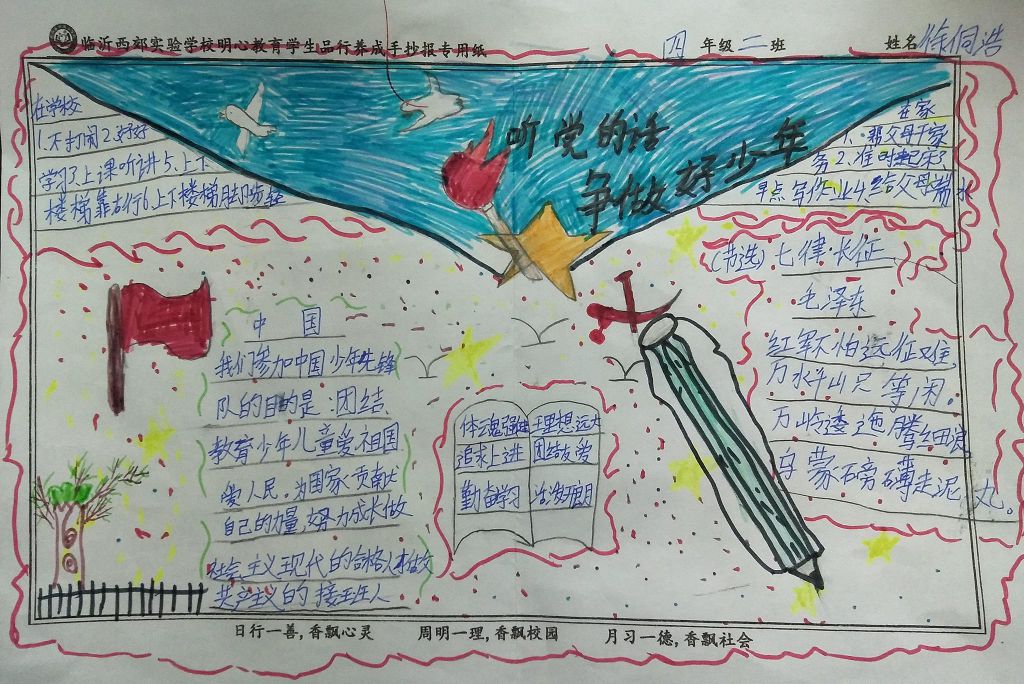 临沂西郊实验学校明心教育学生品行养成手抄报专用纸
四 年级 二 班
姓名 徐侗浩
在学校
1.不打闹2.好好
学习3.上课听讲5.上下
楼梯靠右行6.上下楼梯脚步轻
听党的话
争做好少年
在家
1.帮父母干家
务2.准时起床3
早点写作业4.给父母端水
中国
我们参加中国少年先锋
队的目的是:团结
教育少年儿童爱祖国
爱人民。为国家贡献
自己的力量,努力成长做
社会主义现代的合格人才做
共产主义的接班人
体魂强健 理想远大
追求上进 团结友爱
勤奋学习 活泼开朗
(节选)七律·长征
毛泽东
红军不怕远征难,
万水千山只等闲。
五岭逶迤腾细浪
乌蒙磅礴走泥丸。
日行一善,香飘心灵 周明一理,香飘校园 月习一德,香飘社会